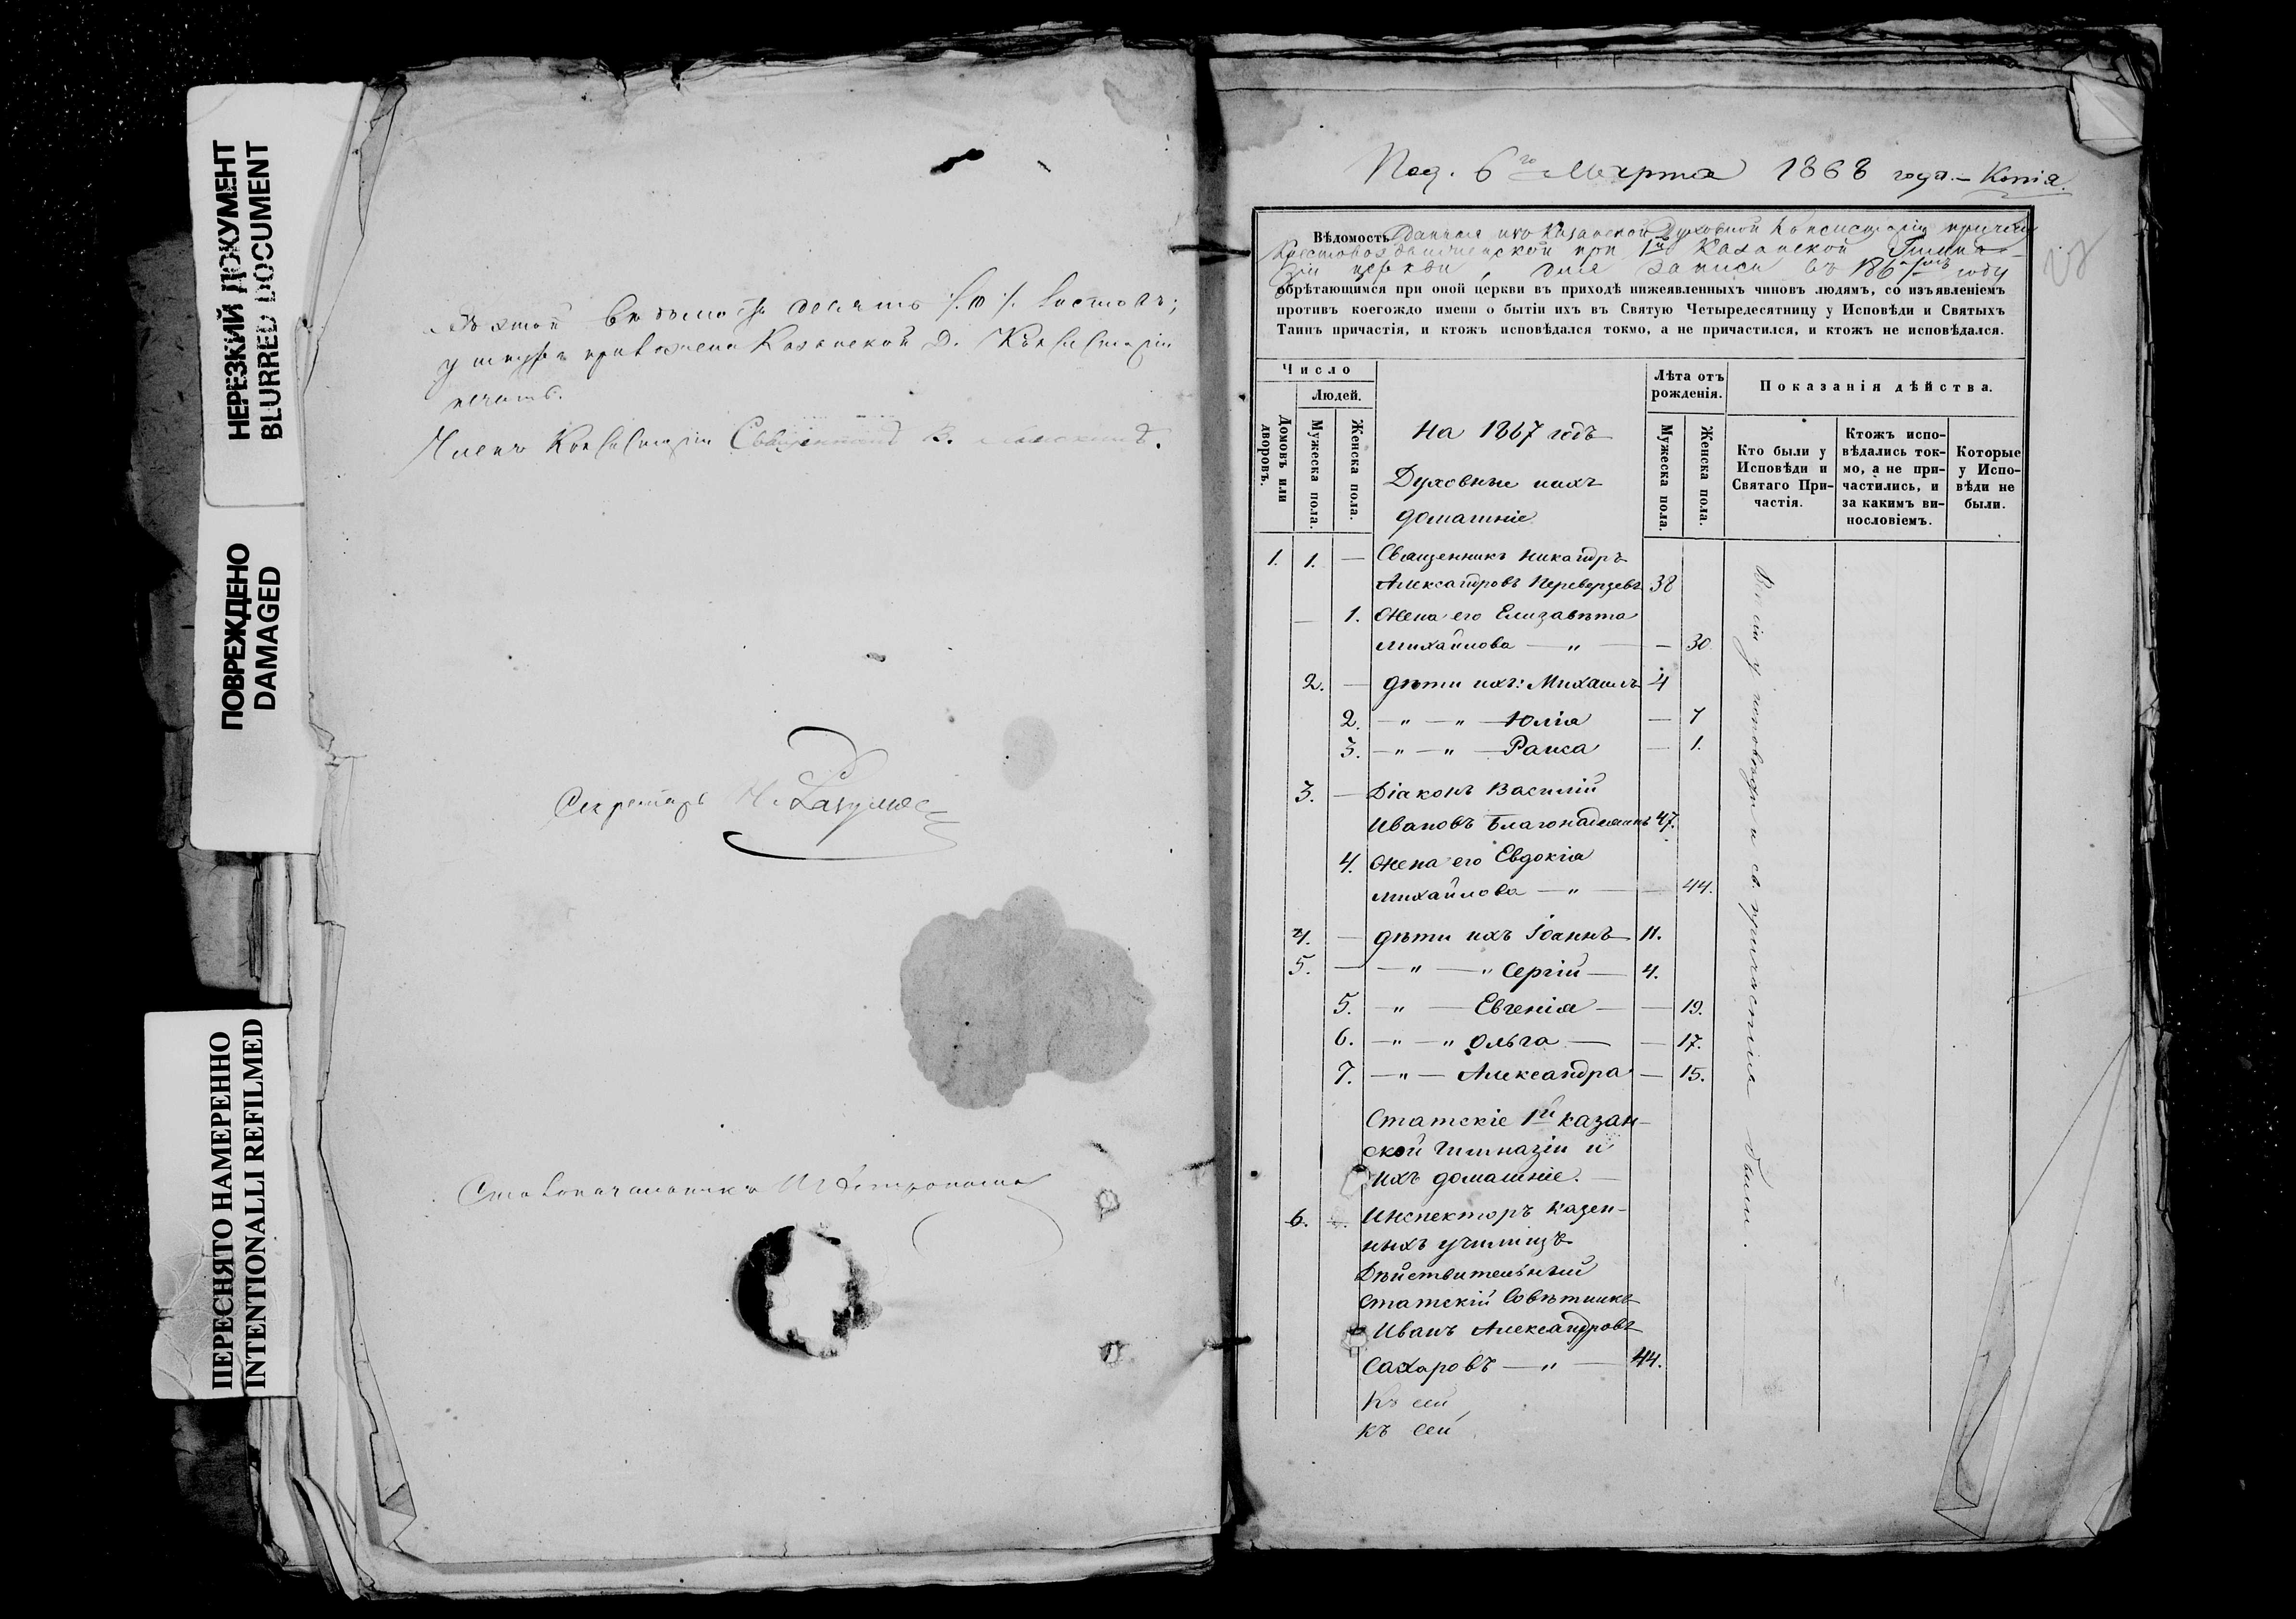 НЕРЕЗКИЙ ДОКУМЕНТ
BLURRED DOCUMENT
ПОВРЕЖДЕНО
DAMAGED
ПЕРЕСНЯТО НАМЕРЕННО
INTENTIONALLI REFILMED
Въ этой десять /.10/. листовъ;
Казанской Д. Консисторіи
печать.
Членъ Консисторіи Священникъ В.
Секретарь Н. Разумов
Столоначальникъ
Под. 6го Марта 1868 года.— Копія.
Вѣдомость данная изъ Казанской Духовной Консисторіи причту
Крестовоздвиженской при 1й Казанской Гимна-
зіи церкви, для записи въ 1867мъ году
обрѣтающимся при оной церкви въ приходѣ нижеявленныхъ чиновъ людямъ, со изъявленіемъ
противъ коегождо имени о бытіи ихъ въ Святую Четыредесятницу у Исповѣди и Святыхъ
Таинъ причастія, и ктожъ исповѣдался токмо, а не причастился, и ктожъ не исповѣдался.
Число
Людей.
Домовъ или дворовъ.
Мужеска пола.
Женска пола.
На 1867 годъ
Духовные ихъ
домашніе
Лѣта отъ рожденія.
Мужеска пола.
Женска пола.
Показанія дѣйства.
Кто были у Исповѣди и Святаго При-частія.
Ктожъ испо-вѣдались ток-мо, а не при-частились, и за какимъ ви-нословіемъ.
Которые у Испо-вѣди не были.
1. 1. — Священникъ Никандръ
Александровъ Переверзевъ 38
— 1. Жена его Елизавета
Михайлова — " — — 30.
2. — дѣти ихъ: Михаилъ 4
2. — " — " — Юлія — 7
3. — " — " — Раиса — 1.
3. — Діаконъ Василій
Ивановъ Благонадеждинъ 47.
4. Жена его Евдокія
Михайлова — " — — 44.
4. — дѣти ихъ Іоаннъ — 11.
5. — — " — " Сергій — 4.
5. — " — Евгенія — — 19.
6. — " — " Ольга — — 17.
7. — " — Александра — 15.
Статскіе 1й Казан-
ской Гимназіи и
ихъ домашніе. —
6. — Инспекторъ казен-
ныхъ училищъ
Дѣйствительный
Статскій Совѣтникъ
Иванъ Александровъ
Сахаровъ — " — 44.
Къ сей
Къ сей
Всѣ сіи у исповѣди и св. причастія были.